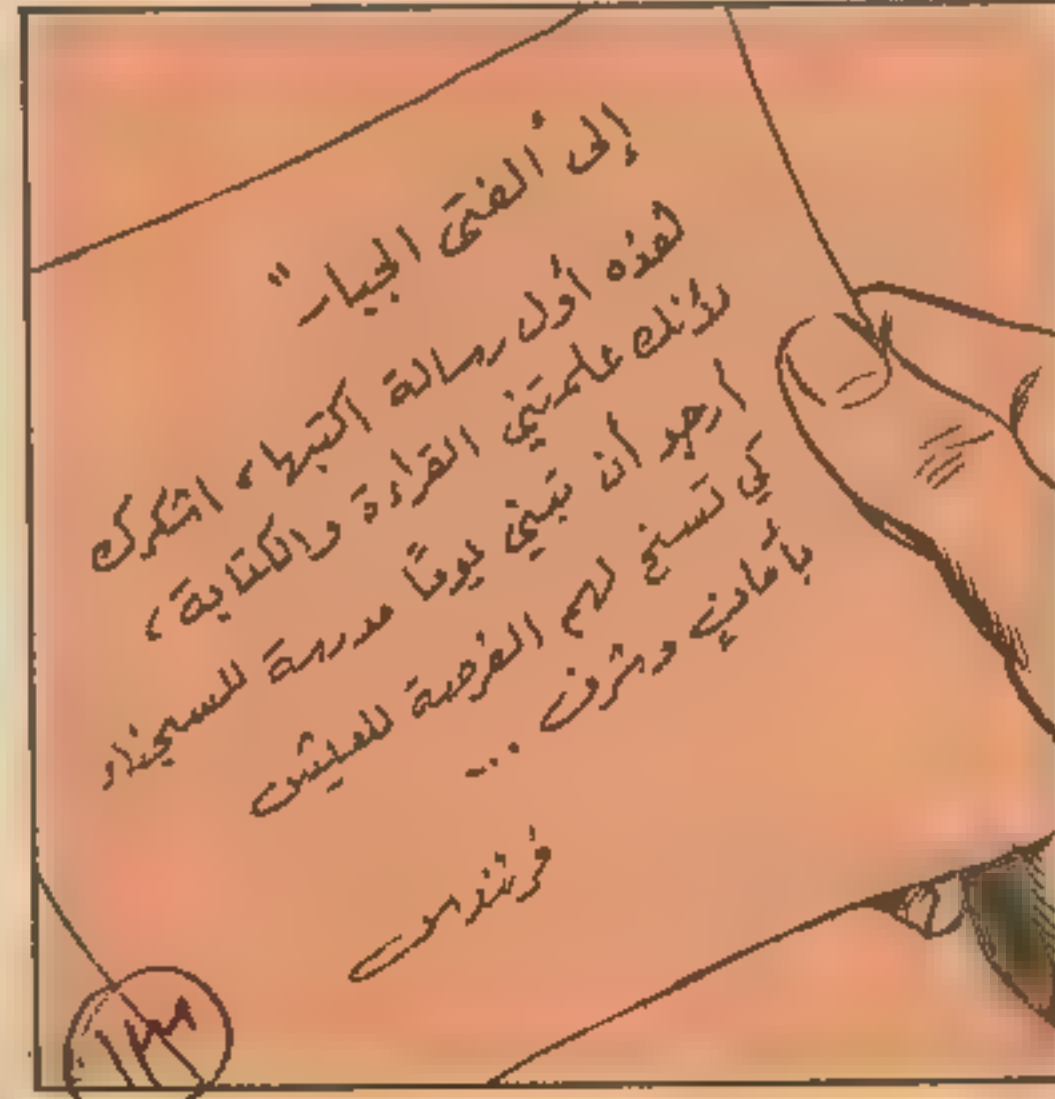 إلى "الفتى الجبار"
هذه أول رسالة اكتبها، اشكرك
لأنك علمتني القراءة والكتابة،
ارجو أن تبني يومًا مدرسة للسجناء
كي تسنح لهم الفرصة للعيش
بأمانٍ وشرف ...
فرنندس